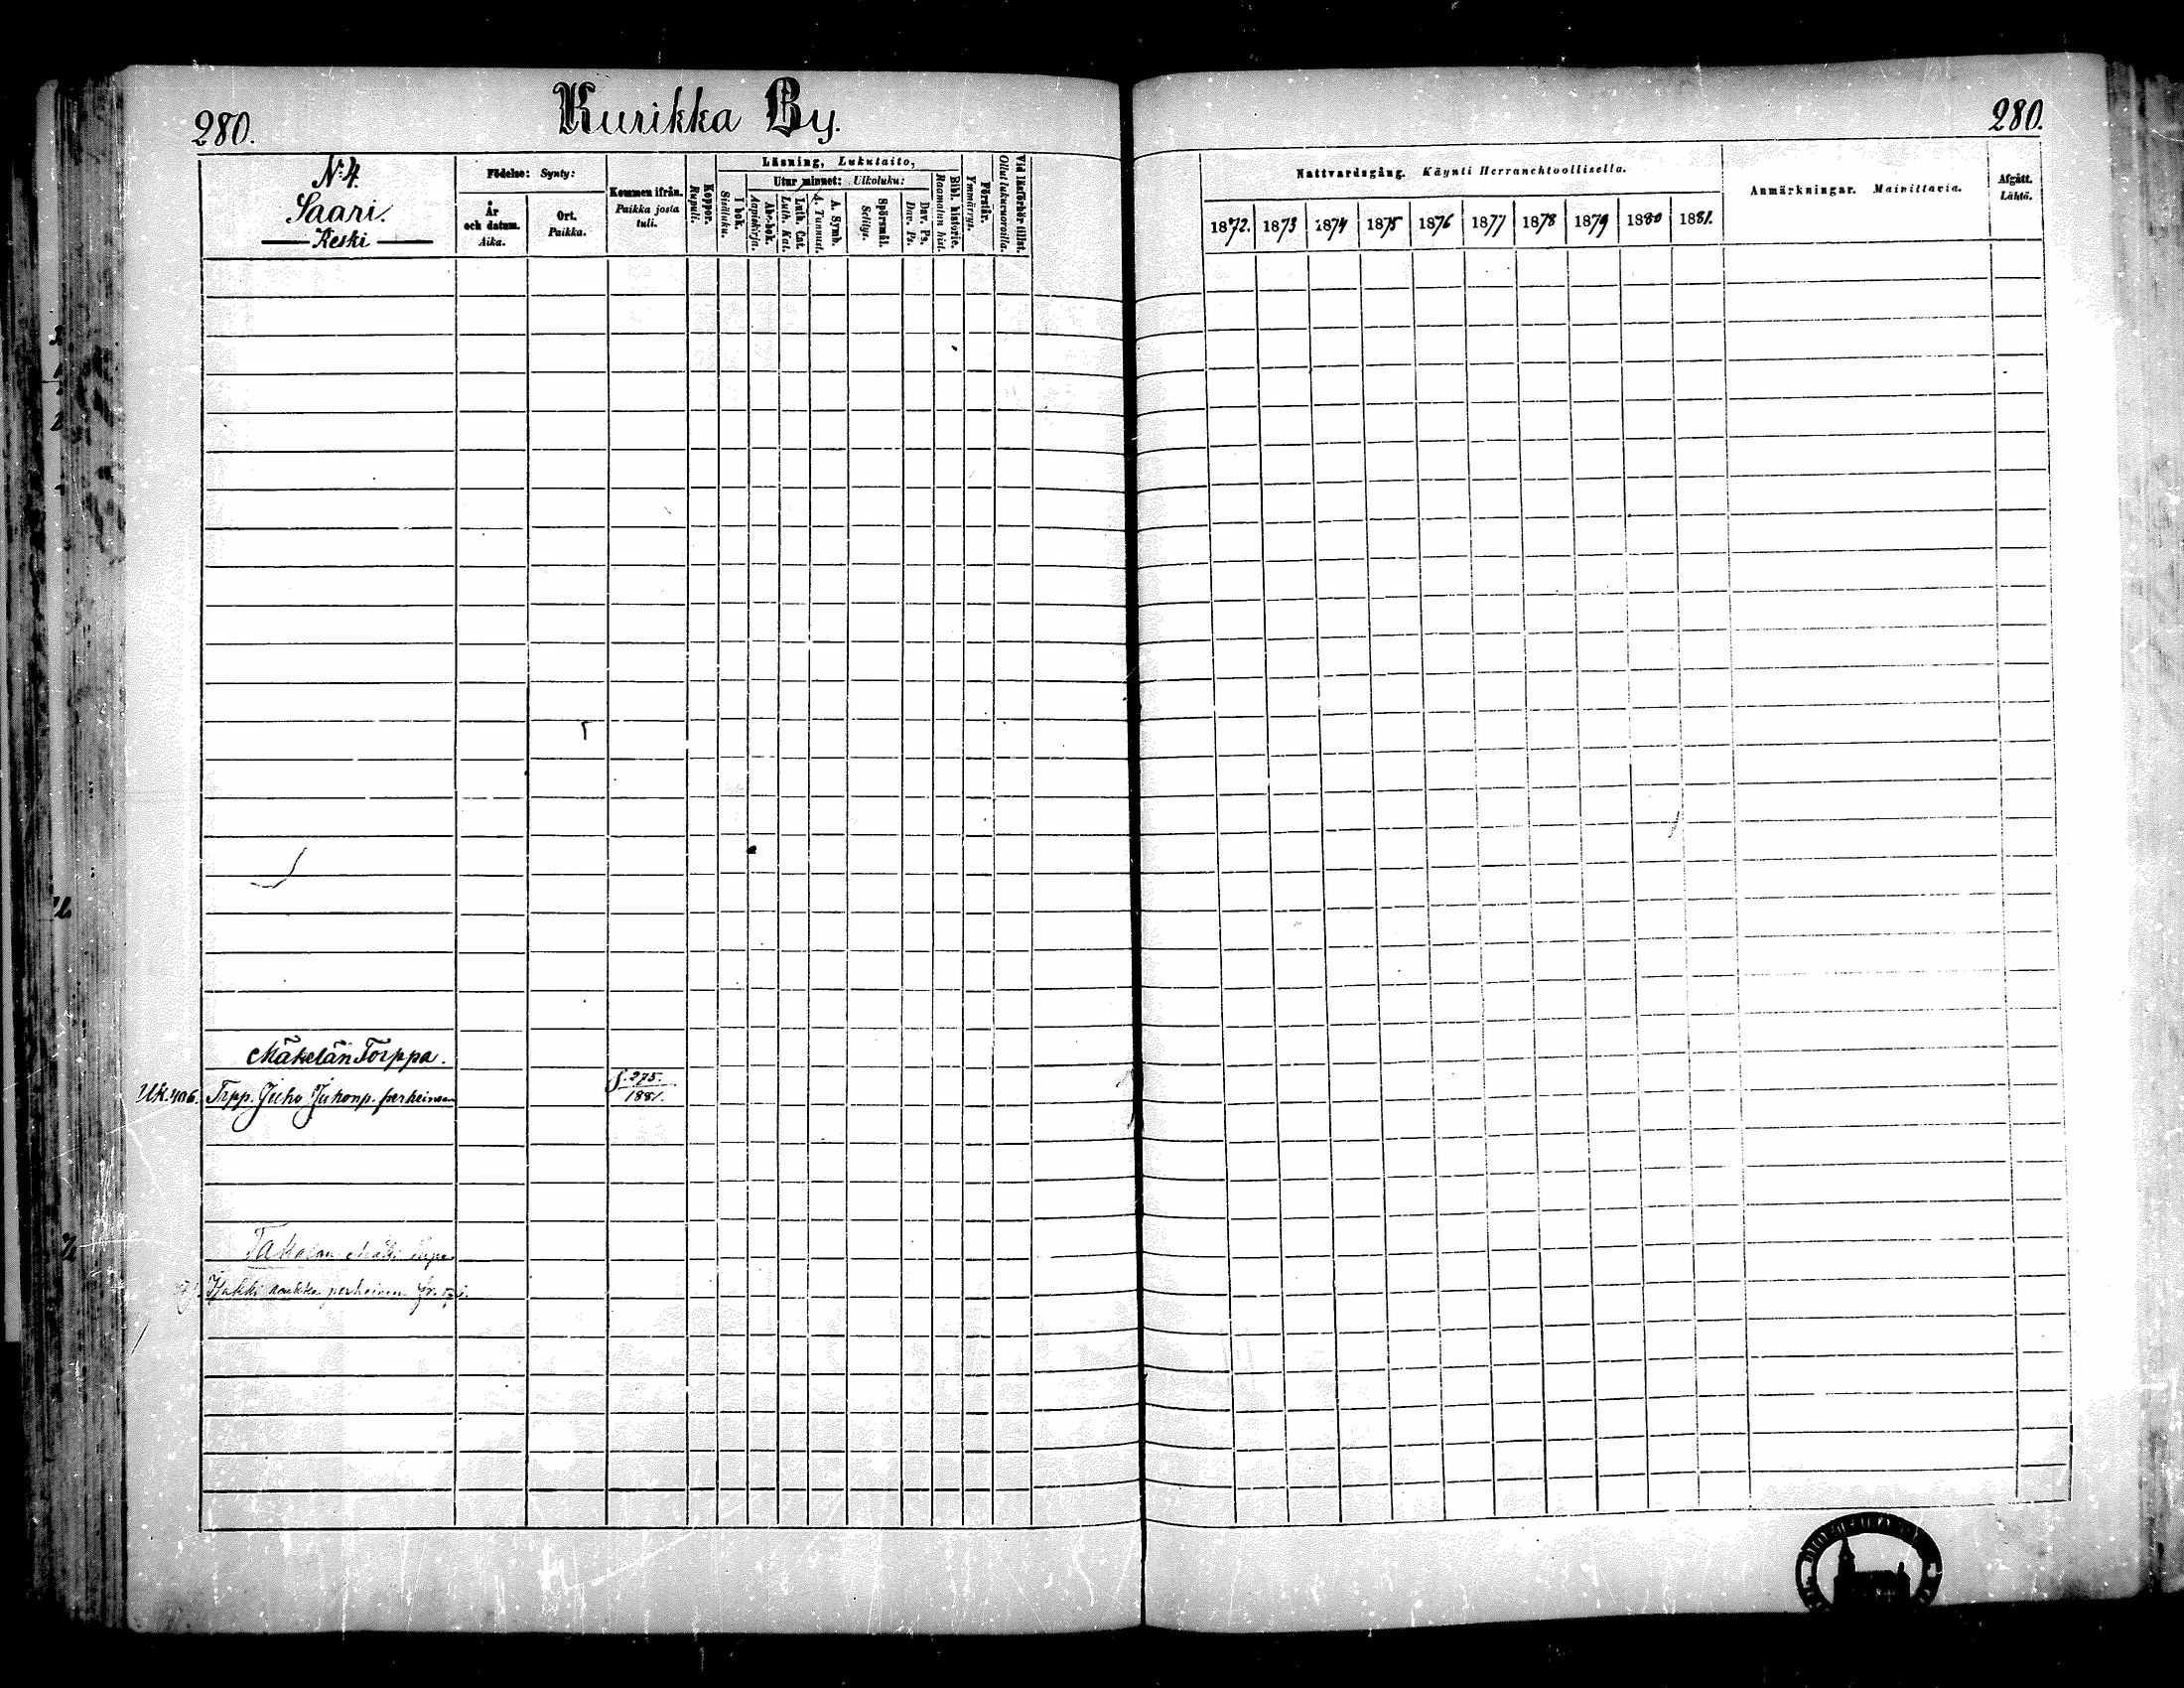 280.
Kurikka By.
280.
N:4.
Saari.
Keski
Födelse: Synty:
År
och datum.
Aika.
Ort.
Paikka.
Kommen ifrån.
Paikka josta
tuli.
Koppor.
Rupuli.
Läsning, Lukutaito,
I bok.
Sisäluku.
Utur minnet: Ulkoluku:
Abc-bok.
Aapiskirja.
Luth. Cat.
Luth. Kat.
A. Symb.
A. Tunnust.
Spörsmål.
Selitys.
Dav. Ps.
Dav. Ps.
Bibl. historie.
Raamatun hist.
Förstån.
Ymmärrys.
Vid läsförhör tillst.
Ollut lukuvuoroilla.
Nattvardsgång. Käynti Herranehtoollisella.
1872. 1873 1874 1875 1876 1877 1878 1879 1880 1881.
Anmärkningar. Mainittavia.
Afgått.
Lähtö.
Mäkelän Torppa.
S. 275.
Uk. 406. Trpp. Juho Juhonp. perheineen
1881.
Takalan
perheineen